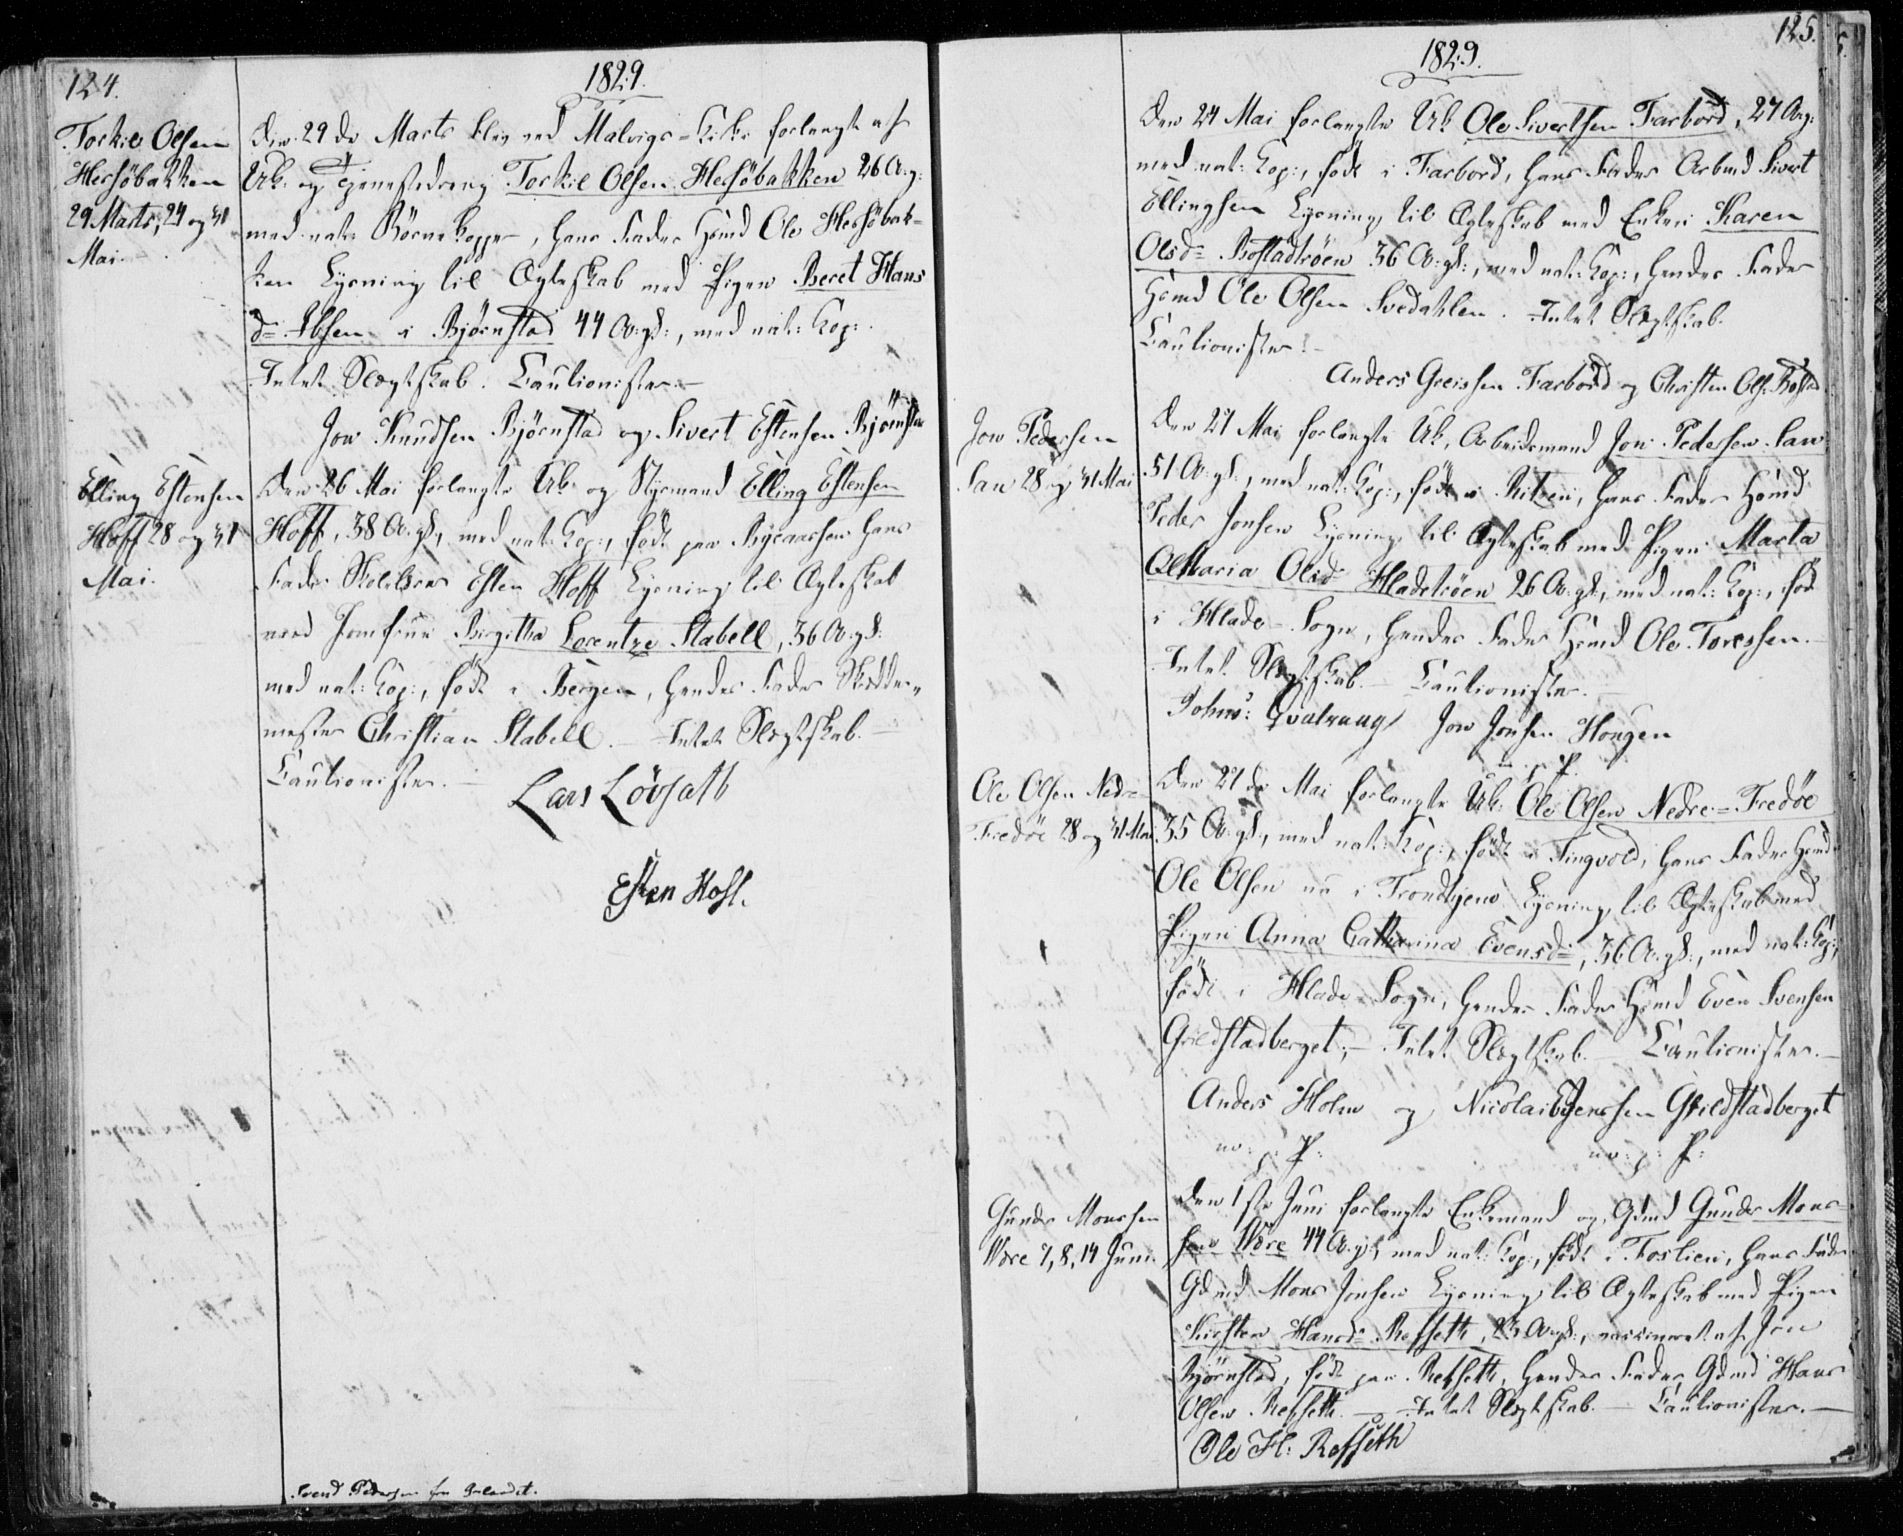 124.
1829.
Torkil Olsen
Hersøbakken
29 Marts, 24 og 31
Mai.
Den 29de Marts blev ved Malvigs=Kirke forlangt af
Uk: og Tjenestedreng Torkil Olsen Hersøbakken 26 A:g:
med nat: Børnekopper, hans Fader Hsmd Ole Hersøbak=
ken Lysning til Ægteskab med Pigen Beret Hans
d= Ibsen i Bjørnstad 44 A:gl:, med nat: Kop:
Intet Slægtskab. Cautionister.-
Jon Knudsen Bjørnstad og Sivert Estensen Bjørnstad
Elling Estensen
Hoff 28 og 31
Mai.
Den 26 Mai forlangte Uk: og Styrmand Elling Estensen
Hoff, 38 A:gl:, med nat: Kop:, født paa hans
Fader Skolelærer Esten Hoff Lysning til Ægteskab
med Jomfrue Birgitha Lorentze Stabell, 36 A:gl:
med nat: Kop:, født i Bergen, hendes Fader Skrædder=
mester Christian Stabell.- Intet Slægtskab.-
Cautionister.-
Lars Lövsatt
Esten Hoff.
Svend Pedersen fra
125.
1829.
Den 24 Mai forlangte Uk Ole Sivertsen Farbord, 27 A:g:
med nat: Kop:, født i Farbord, hans Fader Arbmd Sivert
Ellingsen Lysning til Ægteskab med Enken Karen
Olsd= Rostadtrøen 36 A:gl:, med nat: Kop:, hendes Fader
Hsmd Ole Olsen Svedahlen. Intet Slægtskab.
Cautionister:-
Anders Greissen Farbord og Christen Ols:
Jon Pedersen
Lan 28 og 31 Mai
Den 27 Mai forlangte Uk, Arbeidsmand Jon Pedersen Lan
51 A:gl:, med nat: Kop:, født i hans Fader Hsmd
Peder Jonsen Lysning til Ægteskab med Pigen Marta
Maria Olsd= Hladetrøen 26 A:gl:, med nat: Kop:, fød
i Hlade-Sogn, hendes Fader Hsmd Ole Toressen.-
Intet Slægtskab.- Cautionister.-
Johns: Qvalvaag Jon Jonsen Hougen
m: p: P:
Ole Olsen Nedre=
Fredøe 28 og 31 Mai
Den 27de Mai forlangte Uk: Ole Olsen Nedre=Fredøe
35 A:gl:, med nat: Kop:, født i Tingvold, hans Fader Hsmd
Ole Olsen nu i Trondhjem Lysning til Ægteskab med
Pigen Anna Catharina Evensd=, 36 A:gl:, med nat: Kop:,
født i Hlade-Sogn, hendes Fader Hsmd Even Svensen
Grildstadberget,- Intet Slægtskab.- Cautionister.-
Anders Holm og Nicolai Evensen Grildstadberget
m: p: P: m: p: P:
Gunder Monssen
Være 7, 8, 14 Juni.
Den 1ste Juni forlangte Enkemand og Gdmd Gunder Mons
sen Være 44 A:gl:, med nat: Kop:, født i Foslien, hans Fader
Gdmd Mons Jonsen Lysning til Ægteskab med Pigen
Kirsten Hansd= Reffseth, 23 A:gl:, vaccineret af Jon
Bjørnstad, født paa Refseth, hendes Fader Gdmd Hans
Olsen Refseth.- Intet Slægtskab.- Cautionister.-
Ole H: Reffseth